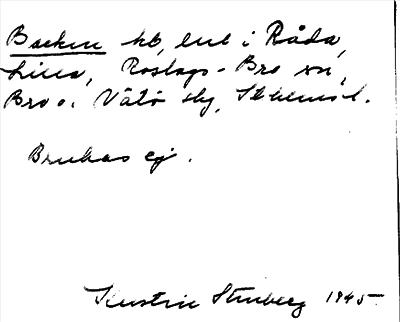 Backen hb, enl i Råda,
Lilla, Roslags-Bro sn,
Bro o. Vätö skg, Sthlms l.
Brukas ej.
Kerstin Stenberg 1945